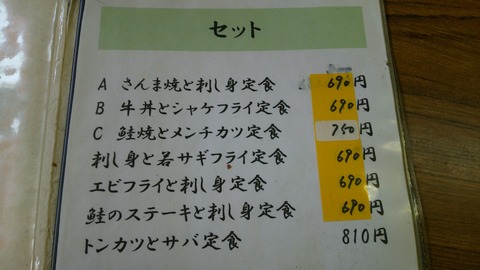 セット
A さんま焼と刺し身定食 690円
B 牛丼とシャケフライ定食 690円
C 鮭焼とメンチカツ定食 750円
刺し身と若サギフライ定食 690円
エビフライと刺し身定食 690円
鮭のステーキと刺し身定食 690円
トンカツとサバ定食 810円